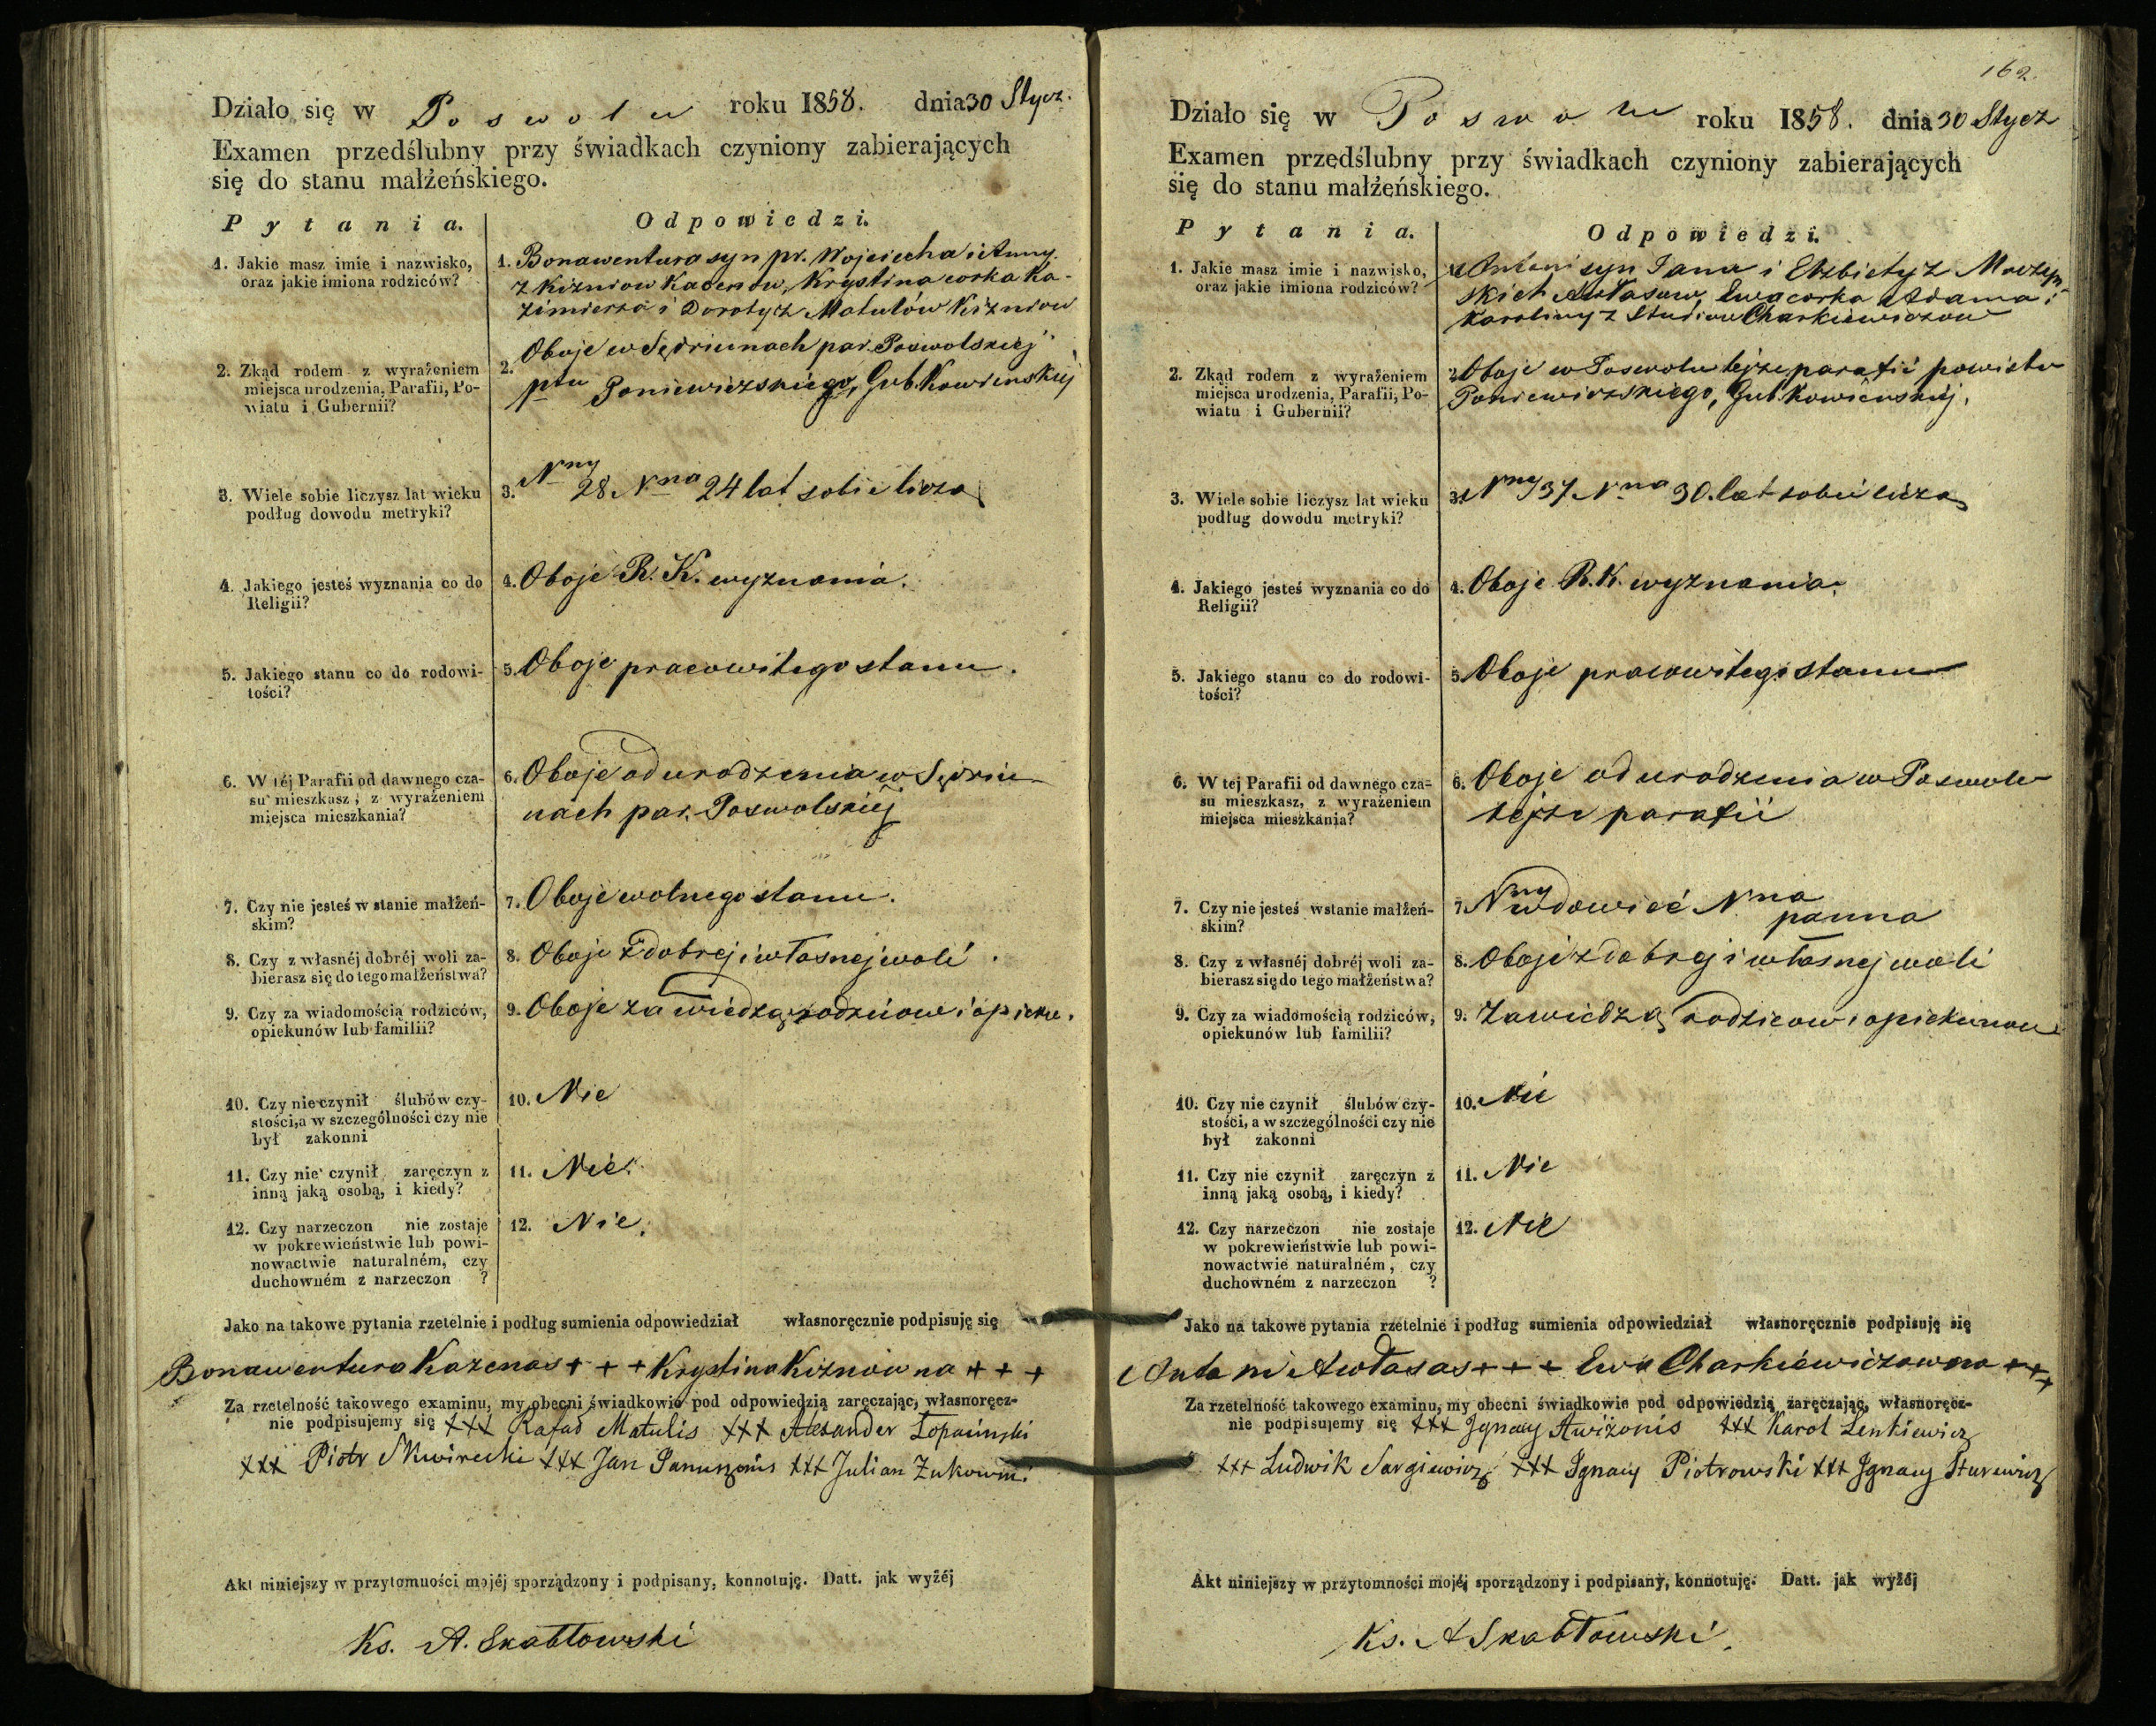 Działo się w Poswolu roku 1858. dnia 30 Stycz.
Examen przedślubny przy świadkach czyniony zabierających
się do stanu małżeńskiego.
Pytania. Odpowiedzi.
1. Jakie masz imie i nazwisko,
oraz jakie imiona rodziców?
1. Bonawentura syn pr. Wojciecha i Anny
z Kiżniow Kacenow, Krystina corka Ka-
zimierza i Doroty z Matulów Kiżniow
2. Zkąd rodem z wyrażeniem
miejsca urodzenia, Parafii, Po-
wiatu i Gubernii?
2. Oboje w Sędziunach par. Poswolskiej
ptu Poniewiezskiego, Gub. Kowienskiej
3. Wiele sobie liczysz lat wieku
podług dowodu metryki?
3. Nny 28 Nna 24 lat sobie liczą
4. Jakiego jesteś wyznania co do
Religii?
4. Oboje R. K. wyznania.
5. Jakiego stanu co do rodowi-
tości?
5. Oboje pracowitego stanu.
6. W téj Parafii od dawnego cza-
su mieszkasz, z wyrażeniem
miejsca mieszkania?
6. Oboje od urodzenia w Sędziu-
nach par. Poswolskiej
7. Czy nie jesteś w stanie małżeń-
skim?
7. Oboje wolnego stanu.
8. Czy z własnéj dobréj woli za-
bierasz się do tego małżeństwa?
8. Oboje z dobrej i własnej woli.
9. Czy za wiadomością rodziców,
opiekunów lub familii?
9. Oboje za wiedzą rodziców i opieku.
10. Czy nie czynił ślubów czy-
stości, a w szczególności czy nie
był zakonni
10. Nie
11. Czy nie czynił zaręczyn z
inną jaką osobą, i kiedy?
11. Nie.
12. Czy narzeczon nie zostaje
w pokrewieństwie lub powi-
nowactwie naturalném, czy
duchowném z narzeczon ?
12. Nie.
Jako na takowe pytania rzetelnie i podług sumienia odpowiedział własnoręcznie podpisuję się
Bonawentura Kazenas + + + Krystina Kiżnówna + + +
Za rzetelność takowego examinu, my obecni świadkowie pod odpowiedzią zaręczając, własnoręcz-
nie podpisujemy się +++ Rafał Matulis +++ Alexander Łopacinski
+++ Piotr Skwirecki +++ Jan Januszonis +++ Julian Żukowski
Akt niniejszy w przytomności mojéj sporządzony i podpisany, konnotuję. Datt. jak wyźéj
Ks. A. Skabłowski
162.
Działo się w Poswolu roku 1858. dnia 30 Stycz
Examen przedślubny przy świadkach czyniony zabierających
się do stanu małżeńskiego.
Pytania. Odpowiedzi.
1. Jakie masz imie i nazwisko,
oraz jakie imiona rodziców?
1. Antoni syn Jana i Elzbiety z
skich Awłasow, Ewa corka Adama i
Karoliny z Charkiewiczow
2. Zkąd rodem z wyrażeniem
miejsca urodzenia, Parafii, Po-
wiatu i Gubernii?
2. Oboje w Poswolu tejże parafii powiatu
Poniewiezskiego, Gub. Kowienskiej.
3. Wiele sobie liczysz lat wieku
podług dowodu metryki?
3. Nny 37 Nna 30. lat sobie liczą
4. Jakiego jesteś wyznania co do
Religii?
4. Oboje R. K. wyznania.
5. Jakiego stanu co do rodowi-
tości?
5. Oboje pracowitego stanu
6. W tej Parafii od dawnego cza-
su mieszkasz, z wyrażeniem
miejsca mieszkania?
6. Oboje od urodzenia w Poswolu
tejże parafii
7. Czy nie jesteś wstanie małżeń-
skim?
7. Nny wdowiec Nna panna
8. Czy z własnéj dobréj woli za-
bierasz się do tego małżeństwa?
8. Oboje z dobrej i własnej woli
9. Czy za wiadomością rodziców,
opiekunów lub familii?
9. Za wiedzą rodzicow i opiekunow
10. Czy nie czynił ślubów czy-
stości, a w szczególności czy nie
był zakonni
10. Nie
11. Czy nie czynił zaręczyn z
inną jaką osobą, i kiedy?
11. Nie
12. Czy narzeczon nie zostaje
w pokrewieństwie lub powi-
nowactwie naturalném, czy
duchowném z narzeczon ?
12. Nie
Jako na takowe pytania rzetelnie i podług sumienia odpowiedział własnoręcznie podpisuję się
Antoni Awłasas + + + Ewa Charkiewiczowna + + +
Za rzetelność takowego examinu, my obecni świadkowie pod odpowiedzią zaręczając, własnoręcz-
nie podpisujemy się +++ Ignacy Awiżonis +++ Karol Lenkiewicz
+++ Ludwik Sargiewicz +++ Ignacy Piotrowski +++ Ignacy
Akt niniejszy w przytomności mojéj sporządzony i podpisany, konnotuję. Datt. jak wyźéj
Ks. A Skabłowski.